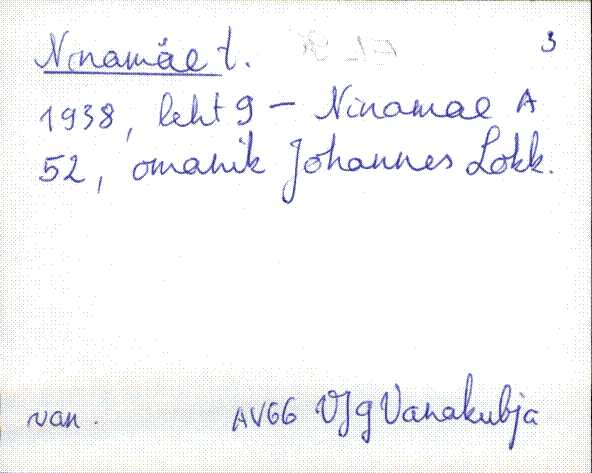 Ninamäe t. 3
1938, leht 9 – Ninamae A
52, omanik Johannes Lokk.
van. AV66 VJg Vanakubja